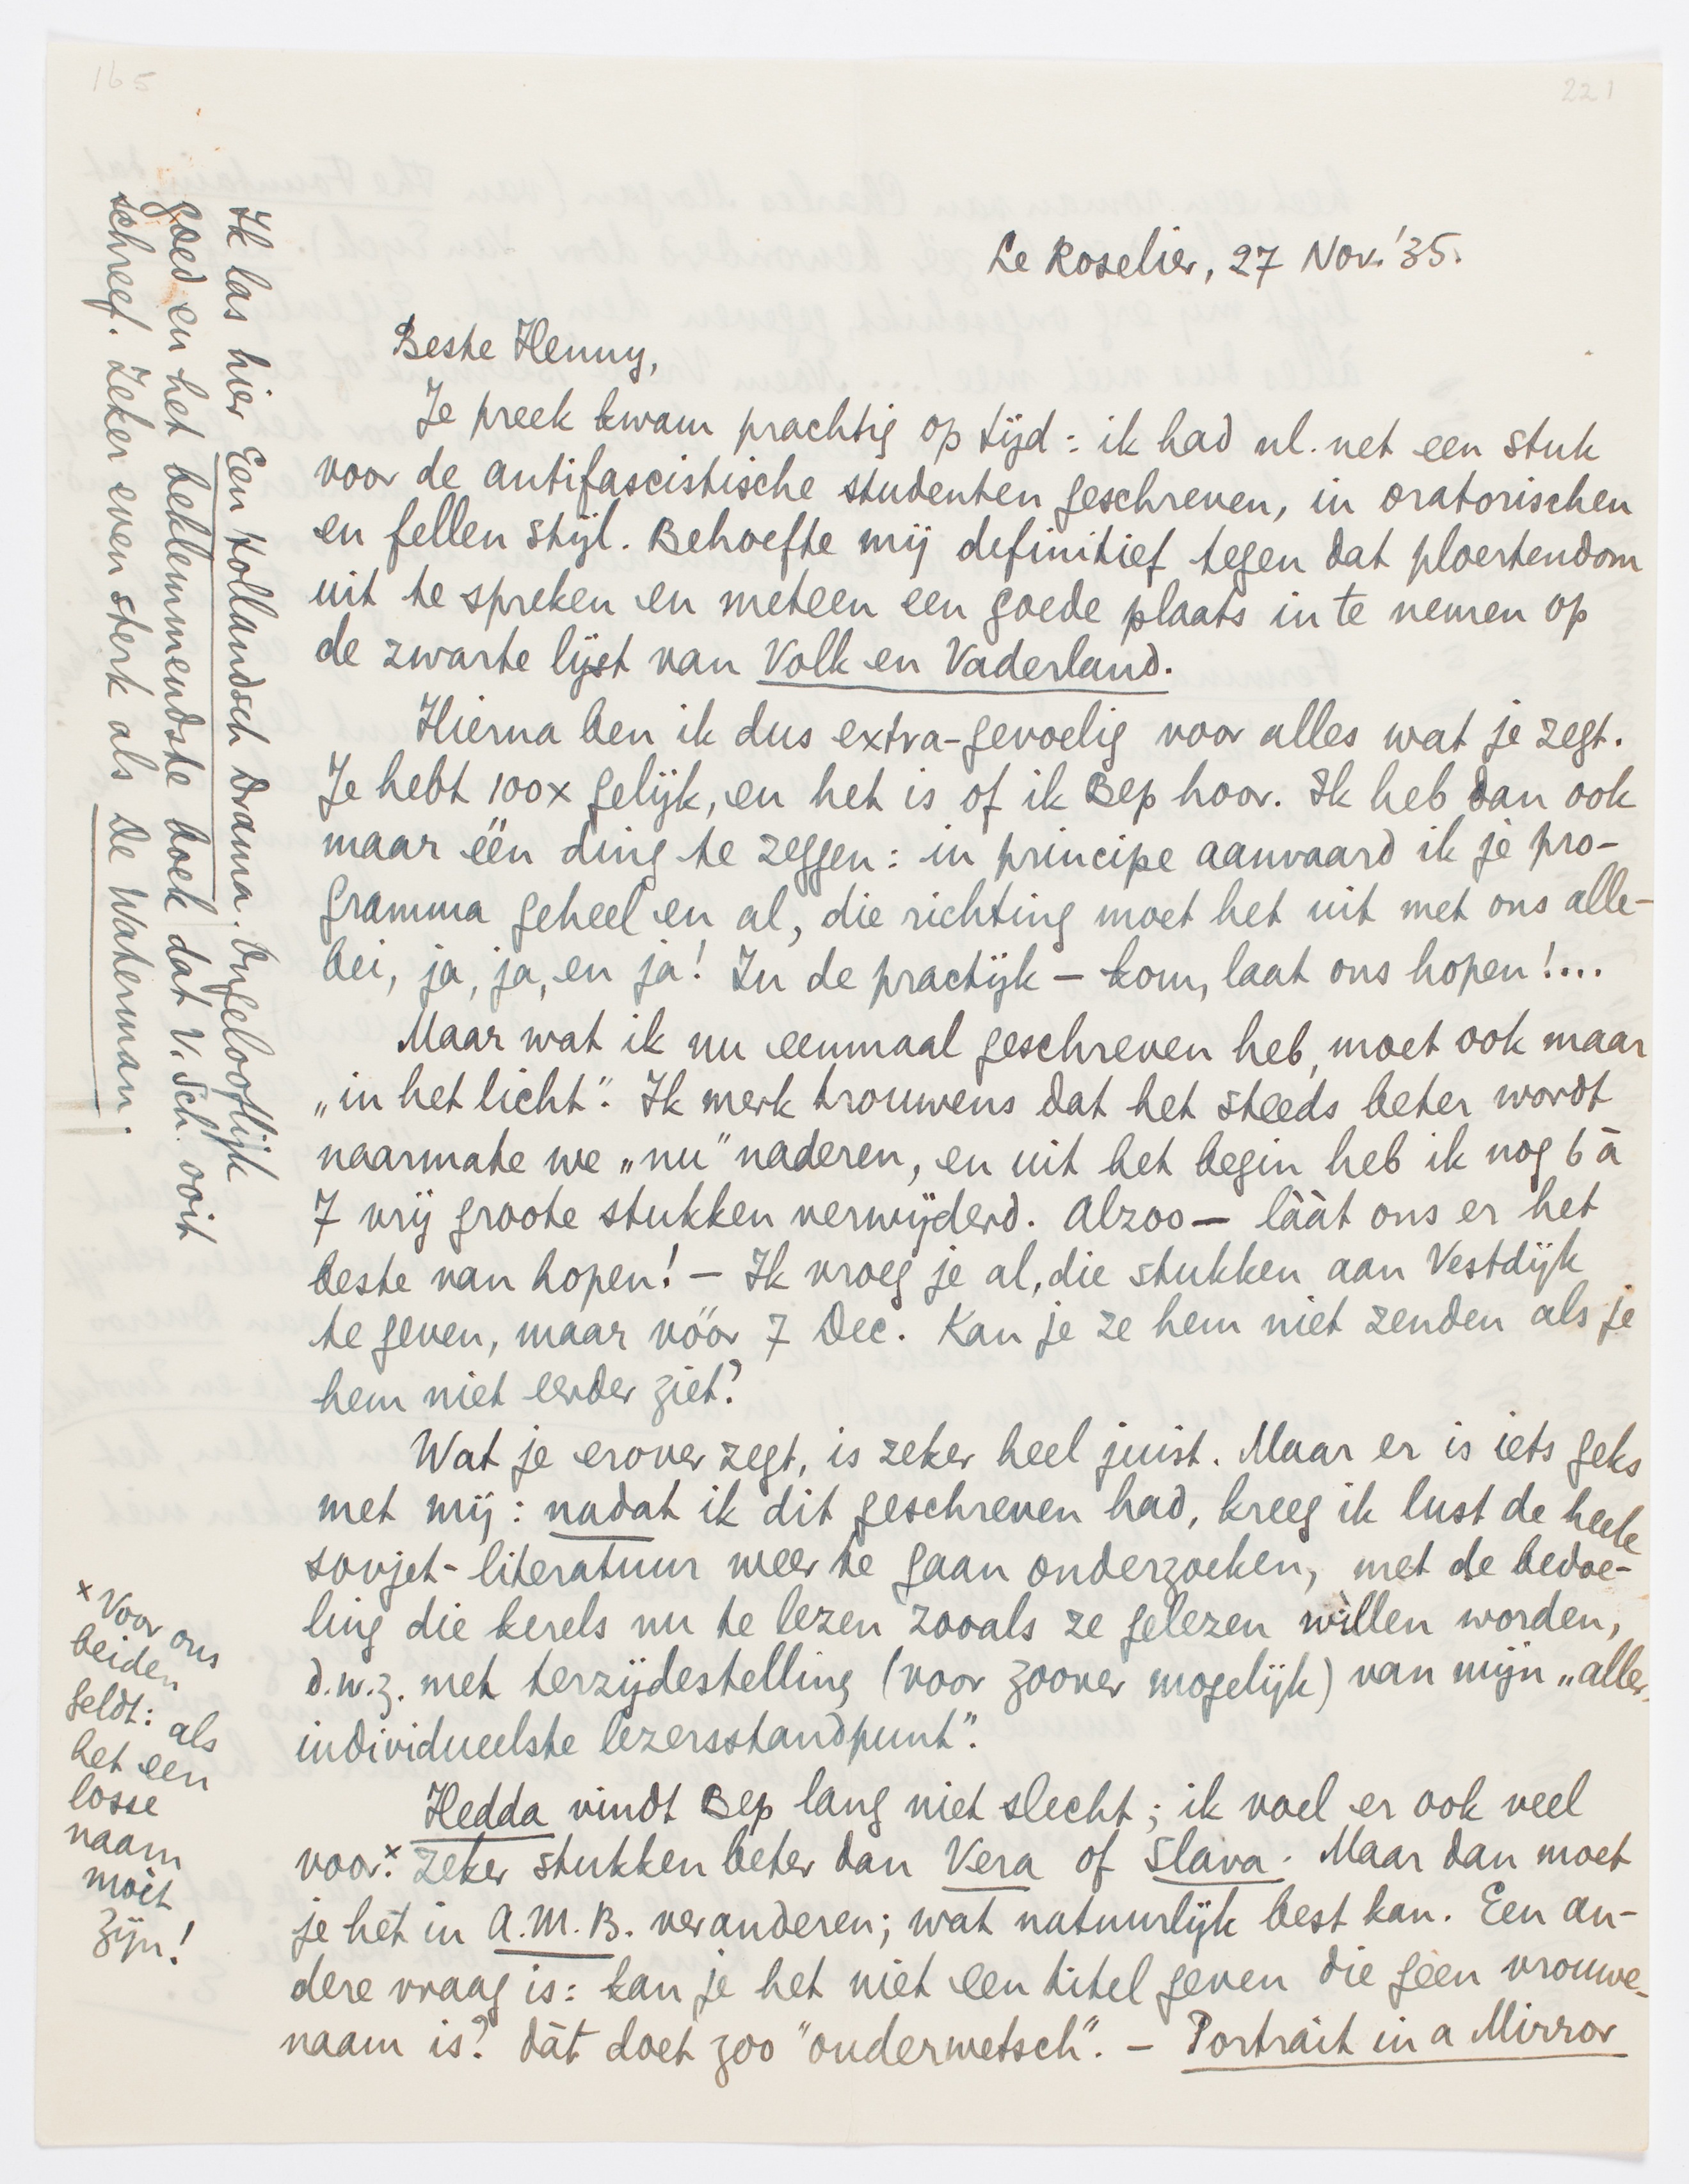 165
221
Le Roselier, 27 Nov.'35.
Beste Henny,
Je preek kwam prachtig op tijd: ik had nl. net een stuk
voor de antifascistische studenten geschreven, in oratorischen
en fellen stijl. Behoefte mij definitief tegen dat ploertendom
uit te spreken en meteen een goede plaats in te nemen op
de zwarte lijst van Volk en Vaderland.
Hierna ben ik dus extra-gevoelig voor alles wat je zegt.
Je hebt 100x gelijk, en het is of ik Bep hoor. Ik heb dan ook
maar één ding te zeggen: in principe aanvaard ik je pro-
gramma geheel en al, die richting moet het uit met ons alle-
bei, ja, ja, en ja! In de practijk – kom, laat ons hopen!...
Maar wat ik nu eenmaal geschreven heb, moet ook maar
„in het licht". Ik merk trouwens dat het steeds beter wordt
naarmate we „nu" naderen, en uit het begin heb ik nog 6 à
7 vrij groote stukken verwijderd. Alzoo — láát ons er het
beste van hopen! – Ik vroeg je al, die stukken aan Vestdijk
te geven, maar vóór 7 Dec. Kan je ze hem niet zenden als je
hem niet eerder ziet?
Wat je erover zegt, is zeker heel juist. Maar er is iets geks
met mij: nadat ik dit geschreven had, kreeg ik lust de heele
sovjet-literatuur weer te gaan onderzoeken, met de bedoe-
ling die kerels nu te lezen zooals ze gelezen willen worden,
d.w.z. met terzijdestelling (voor zoover mogelijk) van mijn „aller-
individueelste lezersstandpunt".
Hedda vindt Bep lang niet slecht; ik voel er ook veel
voor.x Zeker stukken beter dan Vera of Slava. Maar dan moet
je het in A.M.B. veranderen; wat natuurlijk best kan. Een an-
dere vraag is: kan je het niet een titel geven die géén vrouwe-
naam is? Dàt doet zoo "ouderwetsch". – Portrait in a Mirror
x Voor ons
beiden
geldt: als
het een
losse
naam
moèt
zijn!
Ik las hier Een Hollandsch Drama. Ongelooflijk
goed en het beklemmendste boek dat v. Sch. ooit
schreef. Zeker even sterk als De Waterman.